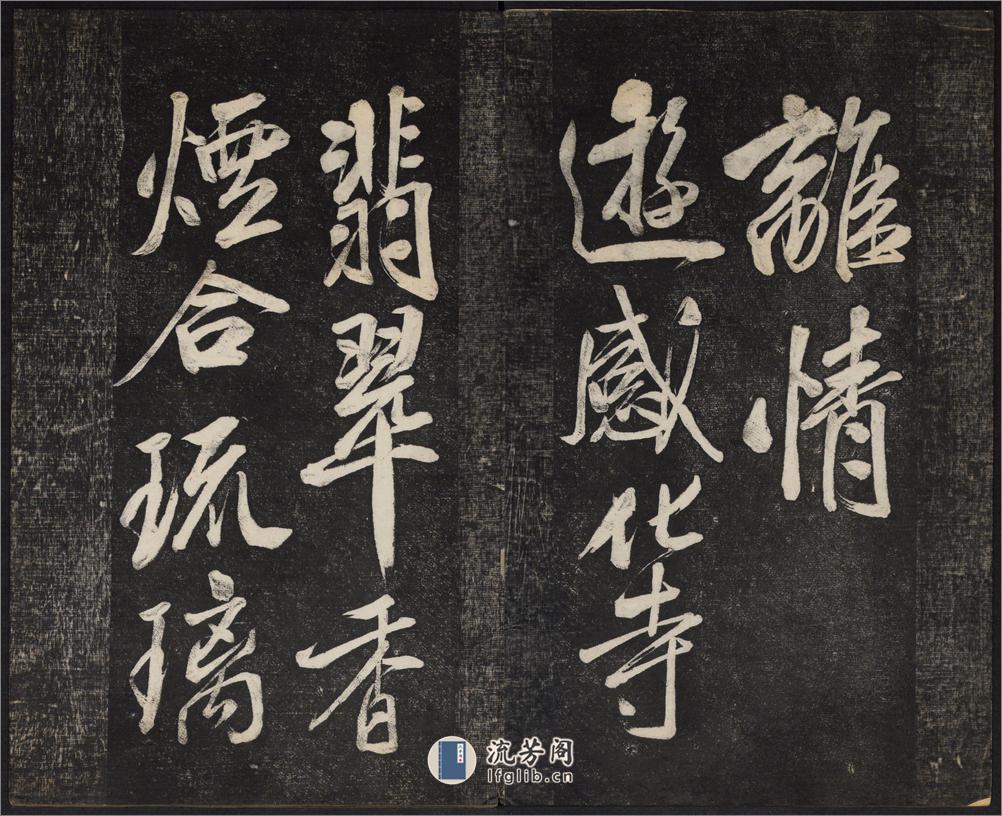 離情
遊感化寺
翡翠香
煙合琉
璃
流芳阁
lfglib.cn